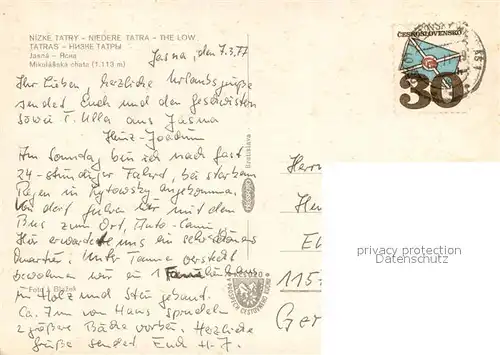 NÍZKE TATRY – NIEDERE TATRA – THE LOW
TATRAS – НИЗКЕ ТАТРЫ
Jasná – Ясна
Mikulášska chata (1.113 m)
Jasna, den 7.3.77
Ihr Lieben, herzliche Urlaubsgrüße
sendet Euch und den Geschwistern
sowie T. Ulla aus Jasna
Heinz-Joachim
Am Sonntag bin ich nach fast
24-stündiger Fahrt, bei starkem
Regen in angekommen.
Von dort fuhren wir mit dem
Bus zum Ort, Auto-Camp.
Hier erwartete uns ein schönes
Quartier. Unter Tannen versteckt
bewohnen wir ein 1 Familienhaus
in Holz und Stein gebaut.
Ca. 7m von Haus sprudeln
2 größere Bäche vorbei. Herzliche
Grüße sendet Euch H-J.
Foto: Blažek
Bratislava
ČESKOSLOVENSKO
30
Herrn
115
Ger
privacy protection
Datenschutz